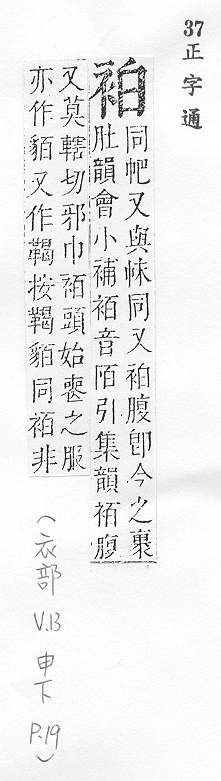 37 正字通
袹
同帊又與帓同又袹腹卽今之裹
肚韻會小補袹音陌引集韻袹腹
又莫轄切邪巾袹頭始喪之服
亦作貊又作鞨按鞨貊同袹非
(衣部 V.13 申下 P.19)